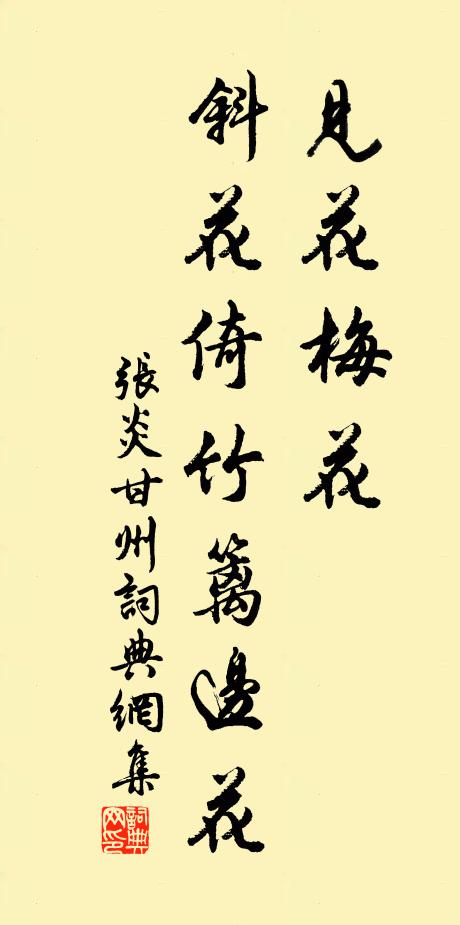 見花梅花
斜花倚竹籬邊花
張炎甘州詞典網集
詞典网印